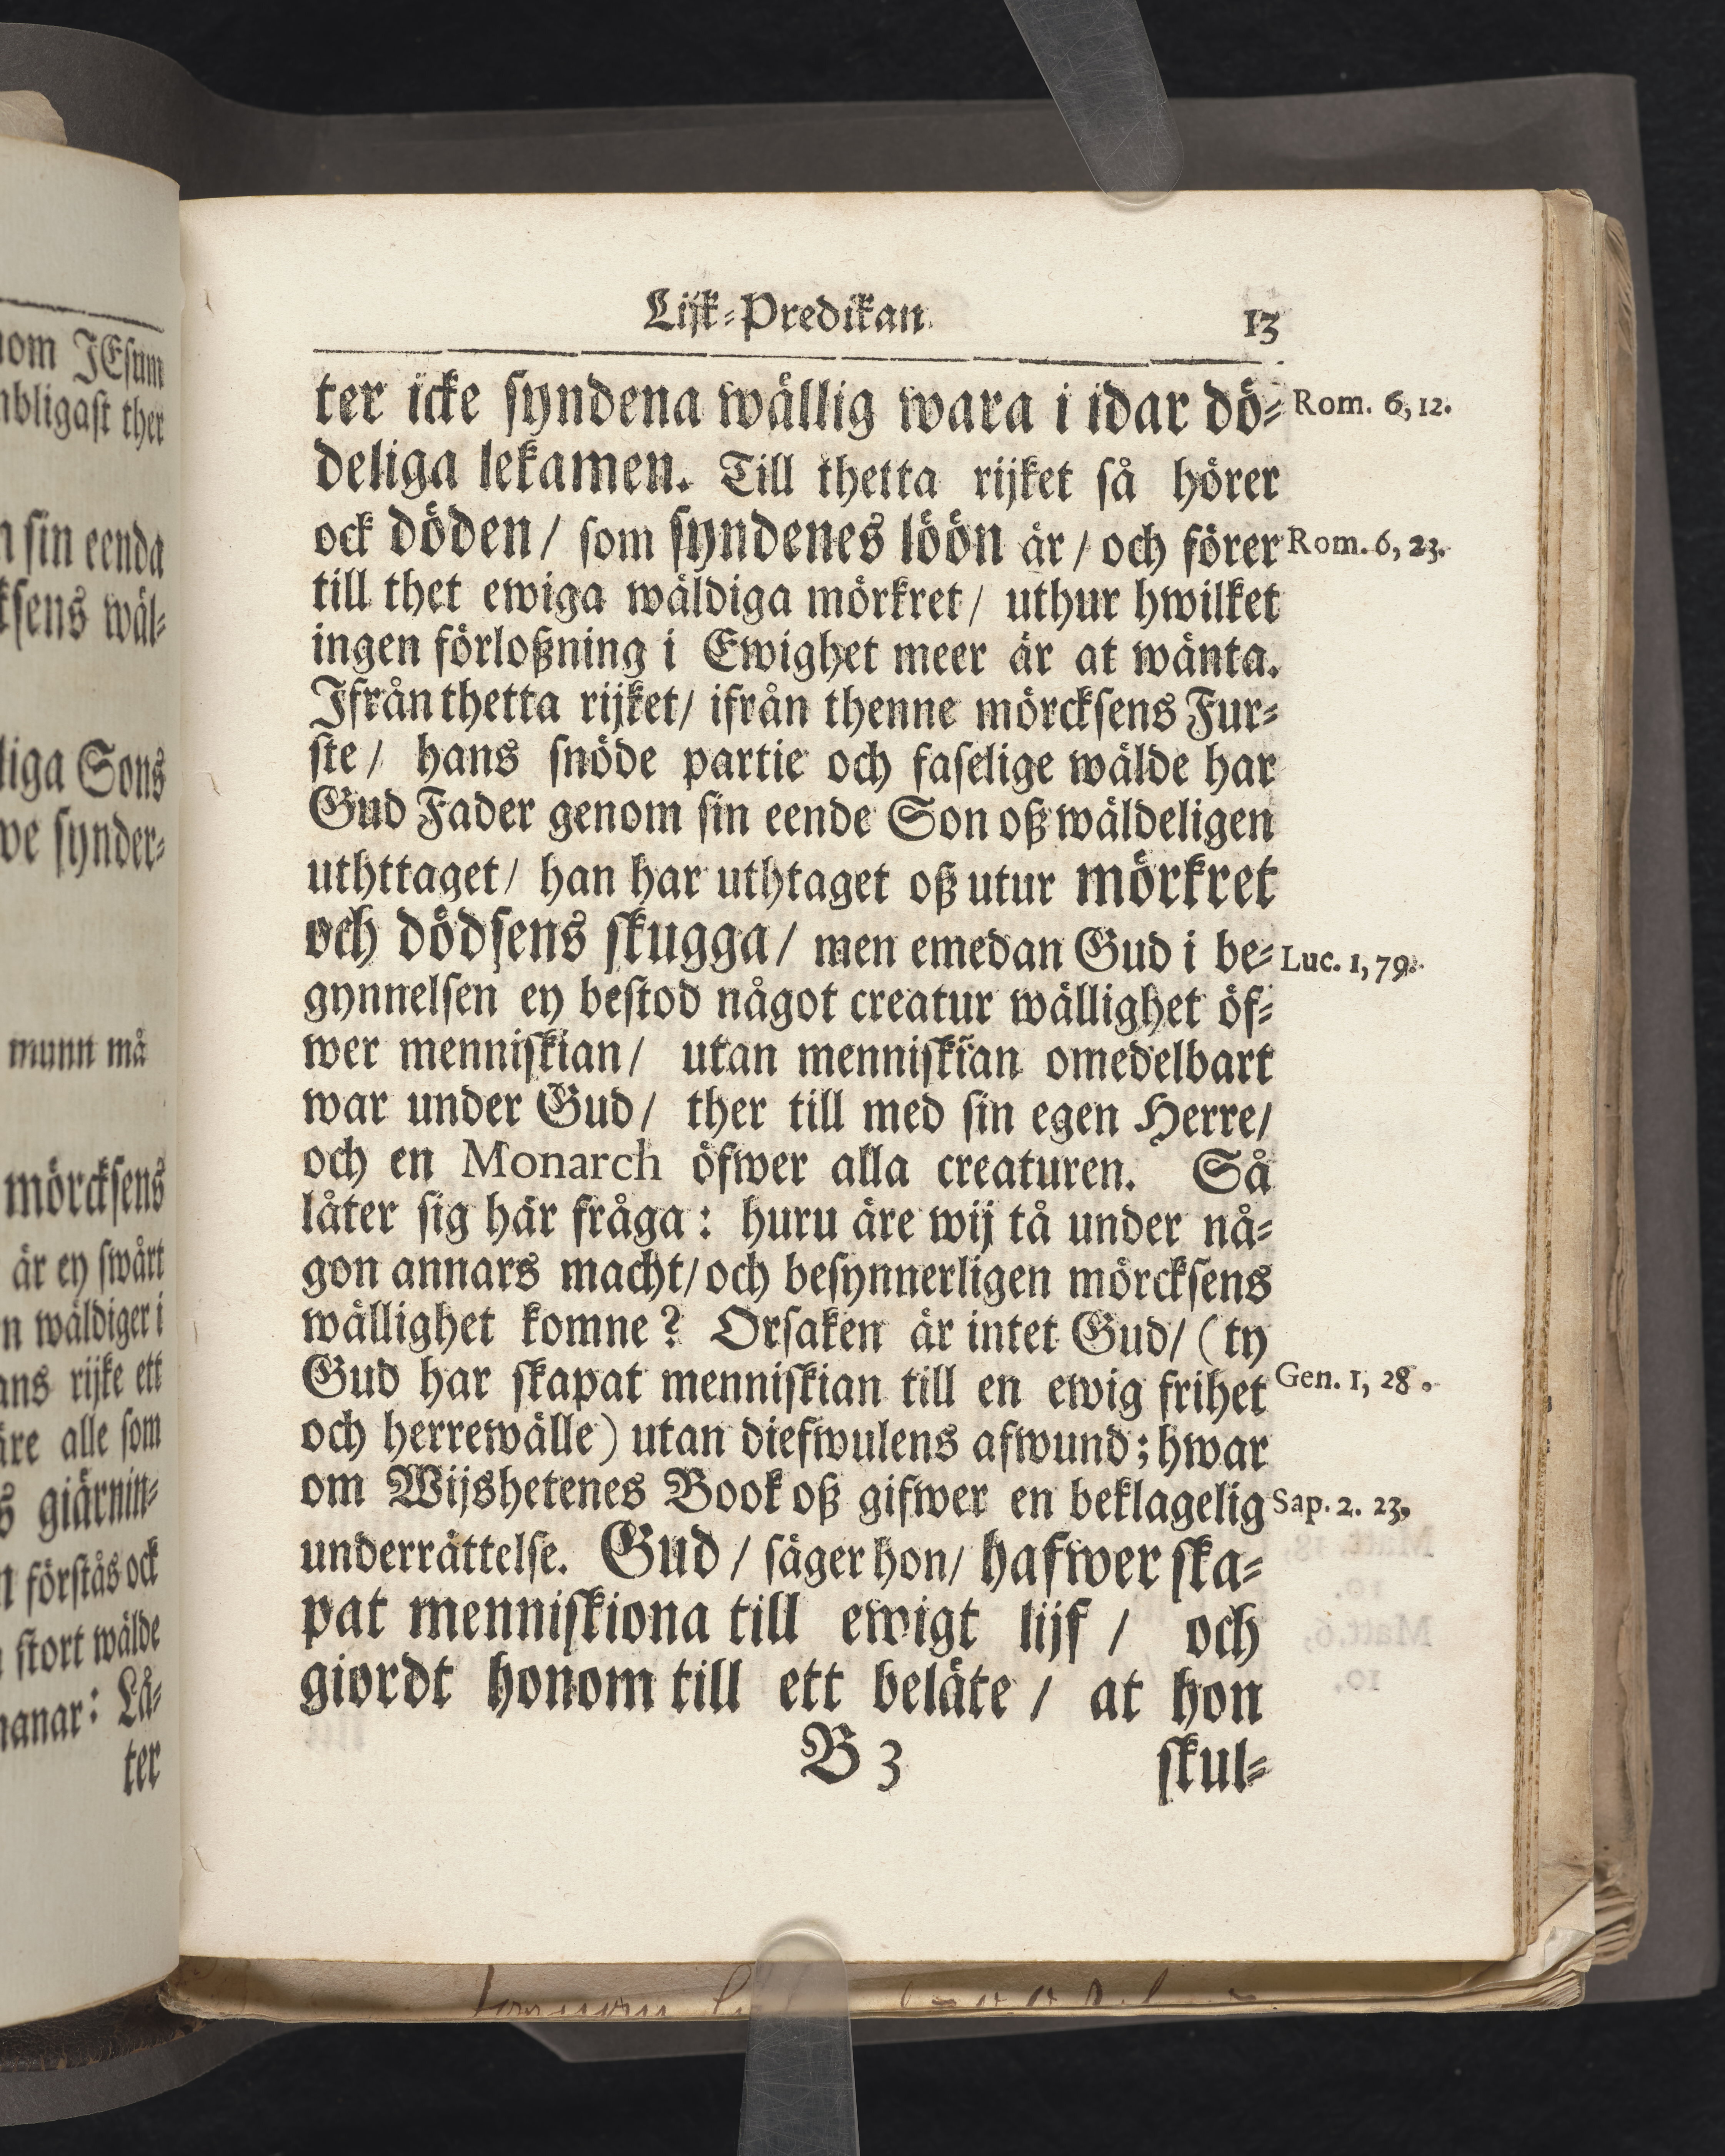 nom JEsum
mbligast ther
n sin eenda
ksens wäl-
liga Sons
we synder-
munn må
mörcksens
är ey swårt
n wäldiger i
ans rijke ett
äre alle som
s giärnin-
n förstås ock
stort wälde
manar: Lå-
ter
Lijk-Predikan
13
ter icke syndena wällig wara i idar dö- Rom. 6, 12.
deliga lekamen. Till thetta rijket så hörer
ock döden / som syndenes löön är / och förer Rom. 6, 23.
till thet ewiga wäldiga mörkret / uthur hwilket
ingen förloßning i Ewighet meer är at wänta.
Ifrån thetta rijket / ifrån thenne mörcksens Fur-
ste / hans snöde partie och faselige wälde har
Gud Fader genom sin eende Son oß wäldeligen
uthttaget / han har uthtaget oß utur mörkret
och dödsens skugga / men emedan Gud i be- Luc. 1, 79.
gynnelsen ey bestod något creatur wällighet öf-
wer menniskian / utan menniskian omedelbart
war under Gud / ther till med sin egen Herre /
och en Monarch öfwer alla creaturen. Så
låter sig här fråga: huru äre wij tå under nå-
gon annars macht / och besynnerligen mörcksens
wällighet komne? Orsaken är intet Gud / (ty
Gud har skapat menniskian till en ewig frihet Gen. 1, 28.
och herrewälle) utan diefwulens afwund; hwar
om Wijshetenes Book oß gifwer en beklagelig Sap. 2. 23,
underrättelse. Gud / säger hon / hafwer ska-
pat menniskiona till ewigt lijf / och
giordt honom till ett beläte / at hon
B 3 skul-